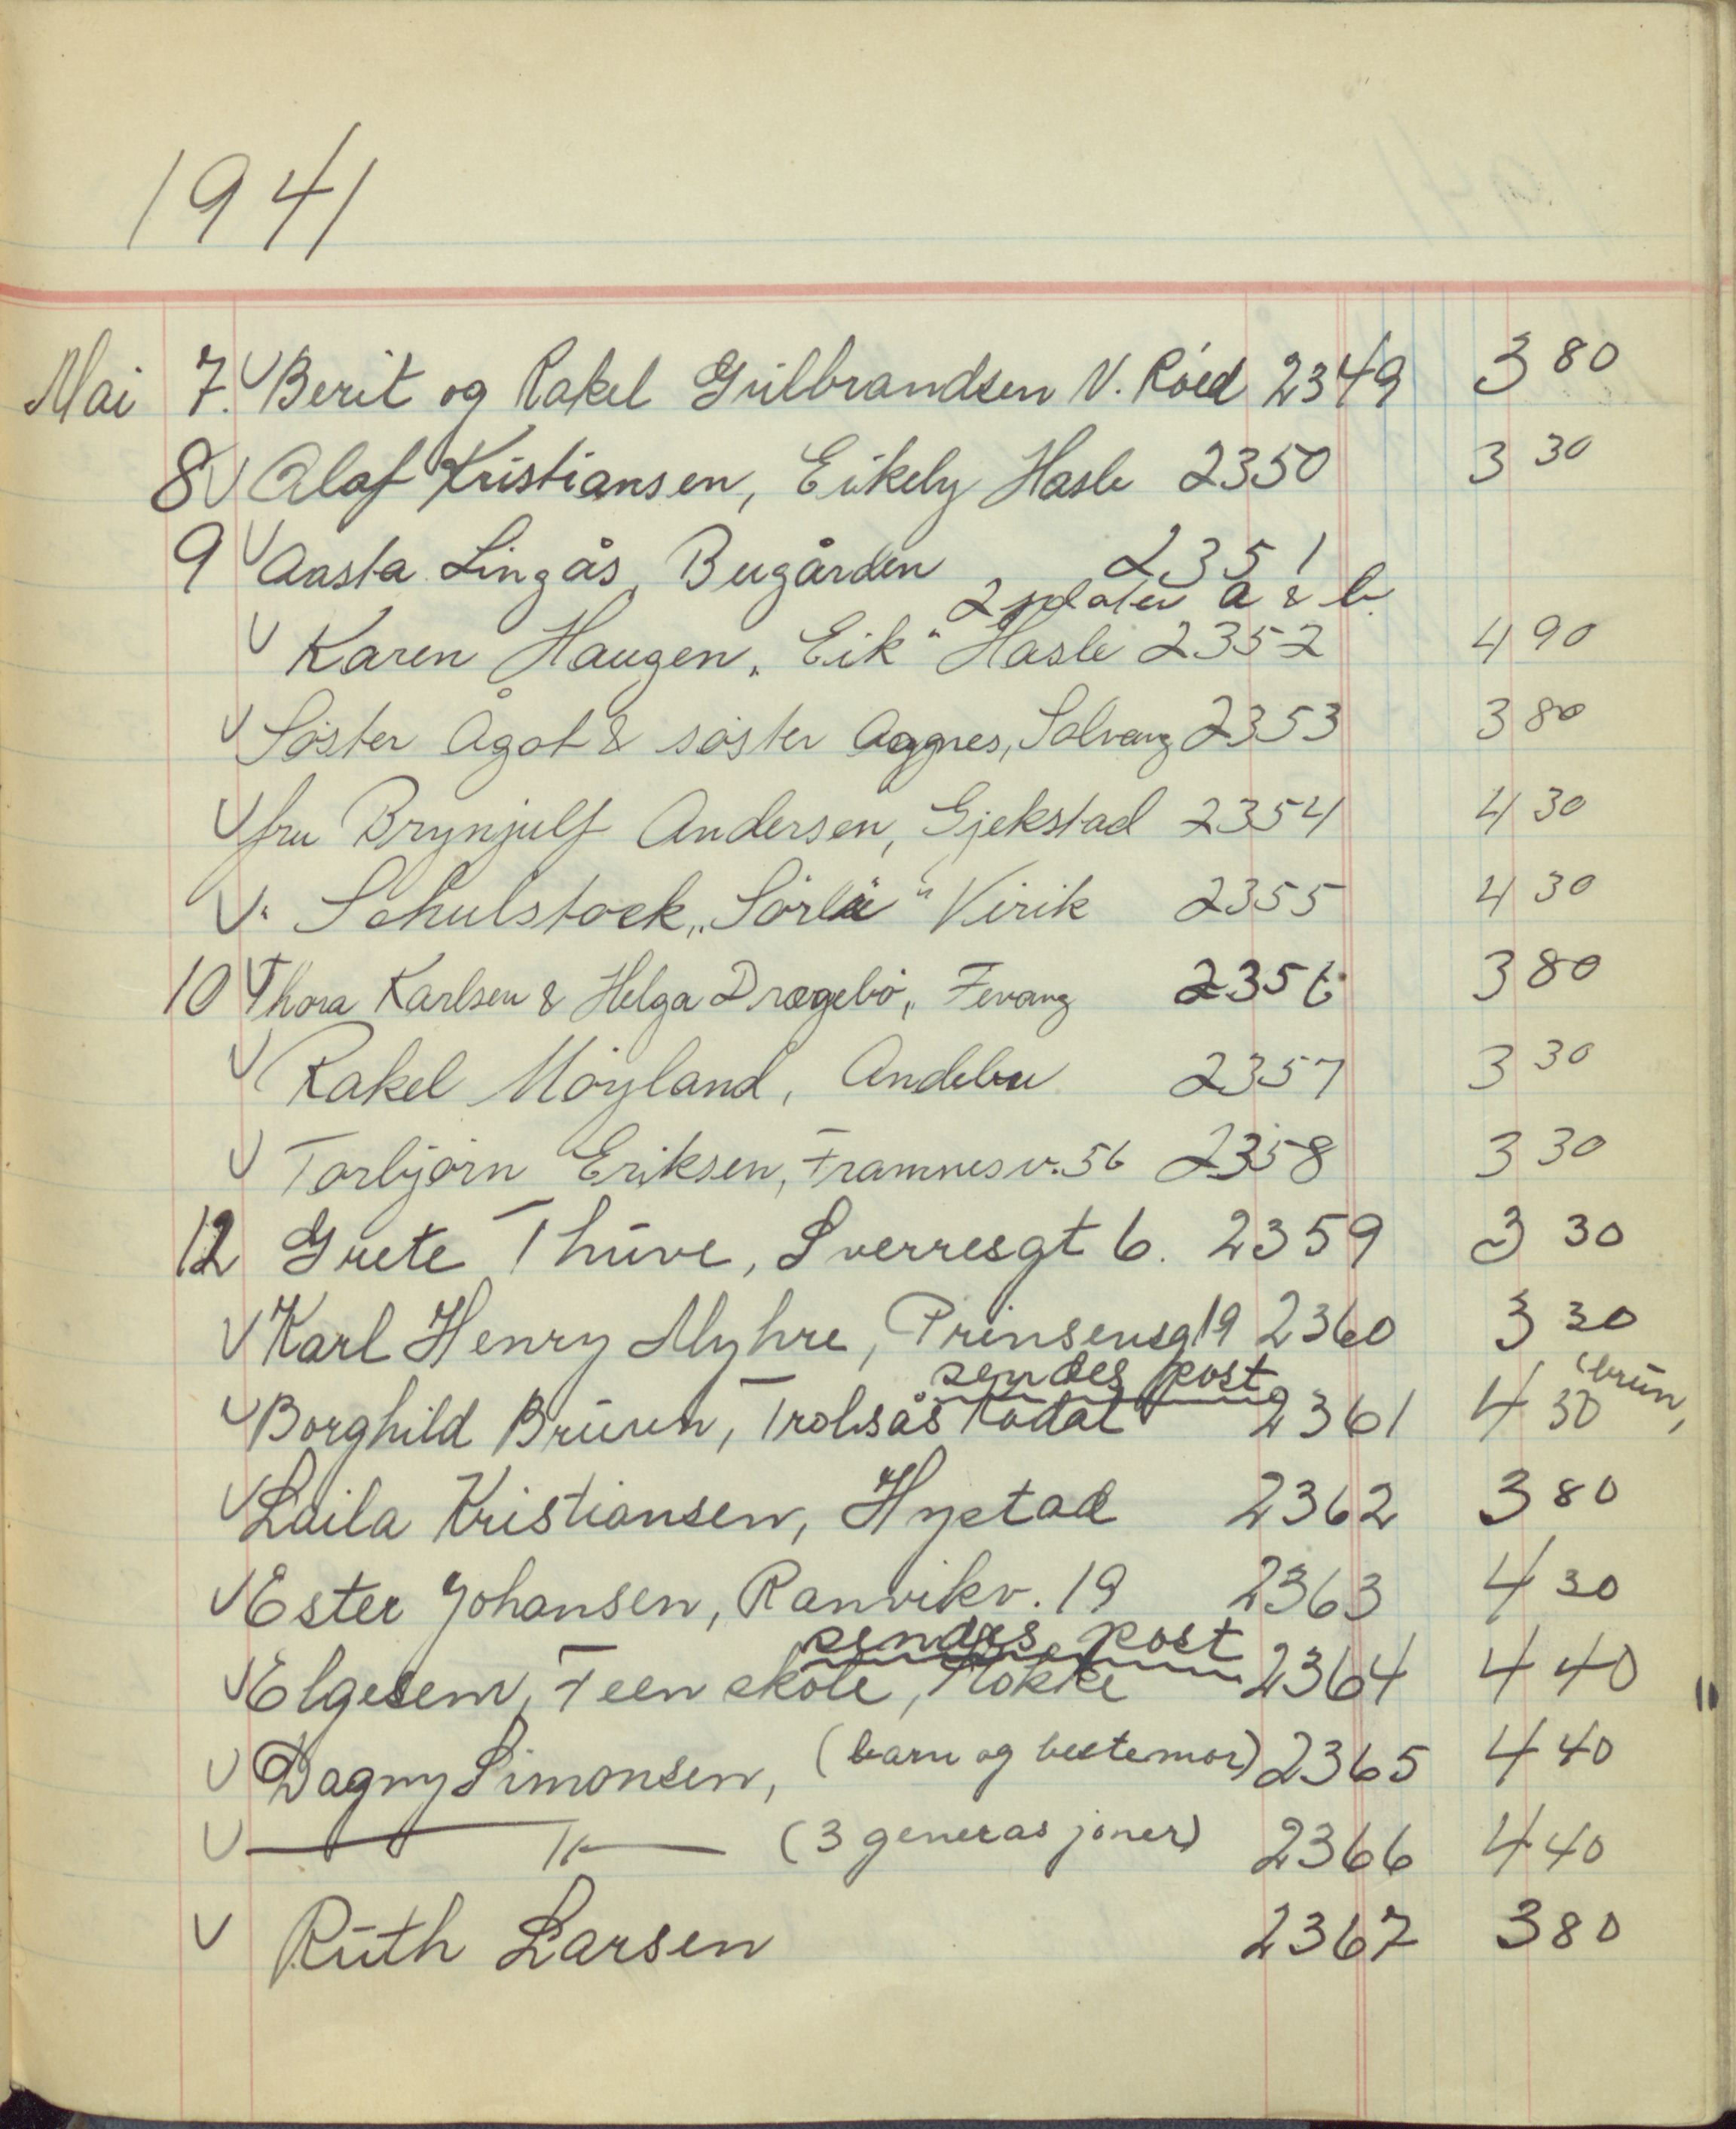 1941
Mai 7. V Berit og Rakel Gulbrandsen N. Röed 2349 3 80
8 V Olaf Kristiansen, Eikely Hasle 2350 3 30
9 V Aasta Lingås, Bugården 2351
2 plater a & b
V Karen Haugen „Eik" Hasle 2352 4 90
V Söster Ågot & söster Aggnes, Solvang 2353 3 80
V fru Brynjulf Andersen, Gjekstad 2354 4 30
V " Schulstock „Sörli" Virik 2355 4 30
10 V Thora Karlsen & Helga Drægebö, Fevang 2356 3 80
V Rakel Möyland, Andebu 2357 3 30
V Torbjörn Eriksen, Framnesv. 56 2358 3 30
12 Grete Thūve, Sverresgt 6. 2359 3 30
V Karl Henry Myhre, Prinsensg 19 2360 3 30
sendes post (brūn,
V Borghild Brūun, Trolsås Kodal 2361 4 30
V Laila Kristiansen, Hystad 2362 3 80
V Ester Johansen, Ranvikv. 19 2363 4 30
sendes post
V Elgesem, Feen skole, 2364 4 40
V Dagny Simonsen, (barn og bestemor) 2365 4 40
V — 〃 — (3 generasjoner) 2366 4 40
V Rūth Larsen 2367 3 80